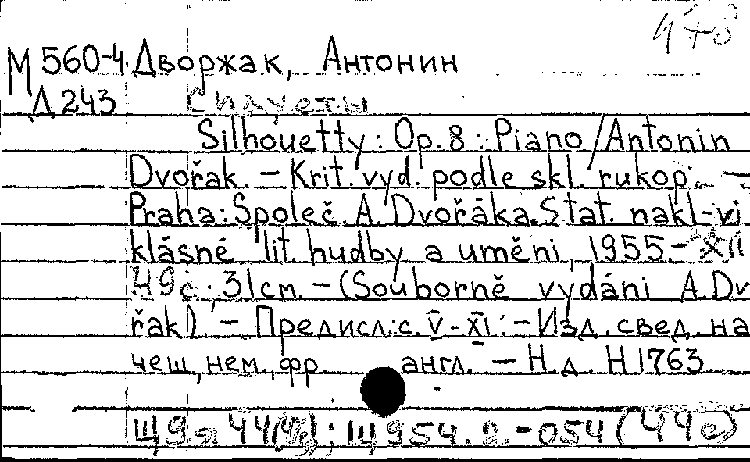 478
М 560-4 Дворжак, Антонин
Д 243 Силуеты
Silhouetty: Op. 8: Piano / Antonin
Dvořak. - Krit. vyd. podle skl. rukop. -
Praha: Společ. A. Dvořáka. Stat. nakl-vi
klásné lit. hudby a uměni, 1955. - XII
49 c.; 31 cm. - (Souborně vydáni A. Dv
řak). - Предисл.: с. V-XI. - Изд. свед. на
чеш., нем., фр. англ. - Н. д. H 1763
Щ9я44(4ч); Щ954.2.-054 (44е)